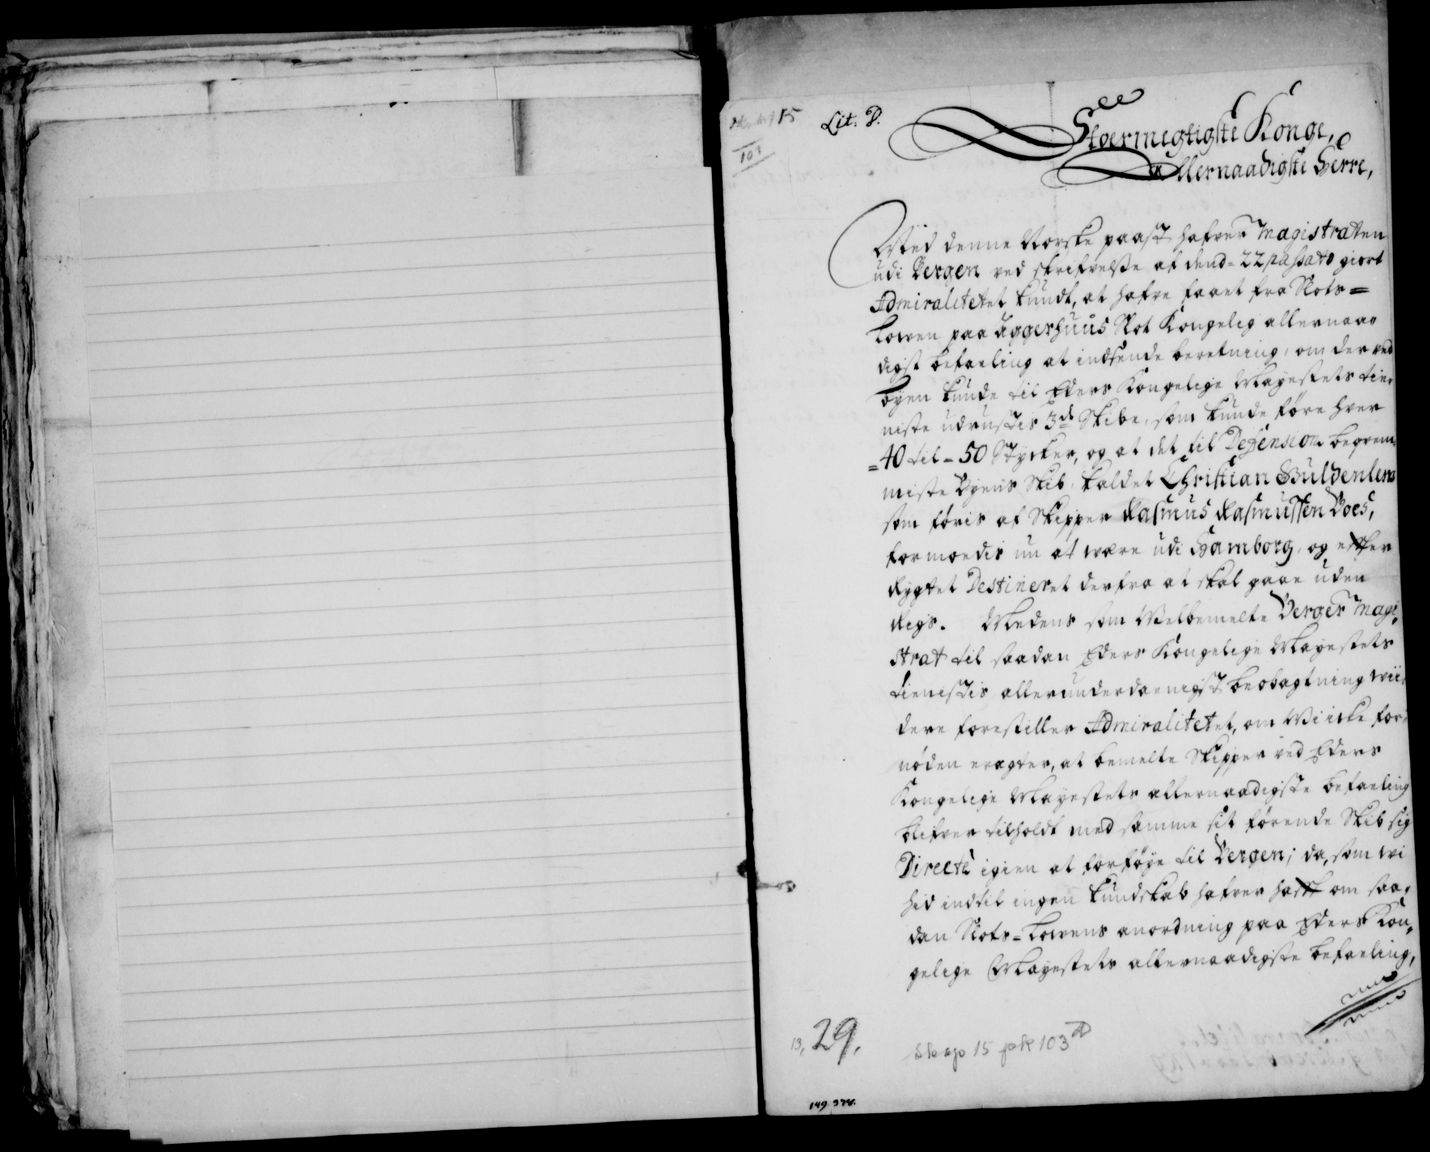 15
103
Lit: D.
Stoermegtigste Konge,
Allernaadigste Herre,
Med denne Norske paast hafver Magistraten
udi Bergen ved skrifvelse af dend = 22 passato giort
Admiralitetet kundt, at hafve faaet fra Slots=
Loven paa Aggerhuus Slot Kongelig allernaa=
digst befaeling at indsende beretning, om der ved
byen kunde til Eders Kongelige Mayestets tie=
niste udrustis 3de Skibe, som kunde føre hver
= 40 til = 50 Stycker, og at det til Defension beqvem
miste Byens Skib, kaldet Christian Guldenlew
som føris af Skipper Rasmus Rasmussen Voes,
formoedis nu at være udi Hamborg, og efter
Rygtet Destineret derfra at skal gaae uden
Rigs. Medens som Velbemelte Berger Magi=
strat til saadan Eders Kongelige Mayestets
tienistis allerunderdaenigst beobagtning vii=
dere forestiller Admiralitetet, om Vi icke for=
nøden eragter, at bemelte Skipper ved Eders
Kongelige Mayestets allernaadigste befaeling
blifver tilholdt med samme sit førende Skib sig
Directe igien at forføye til Bergen; da, som vi
hid indtil ingen kundskab hafver haft om saa=
dan Slots=Lovens anordning paa Eders Kon=
gelige Mayestets allernaadigste befaeling,
13, 29.
Skap 15 pk 103 D
149